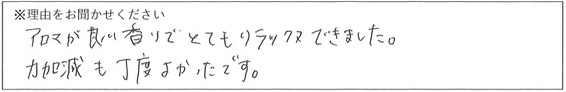 ※理由をお聞かせください
アロマが良い香りでとてもリラックスできました。
力加減も丁度よかったです。